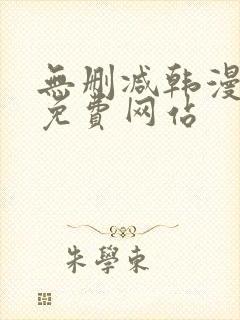 無删减韩漫
免費网站
朱學東